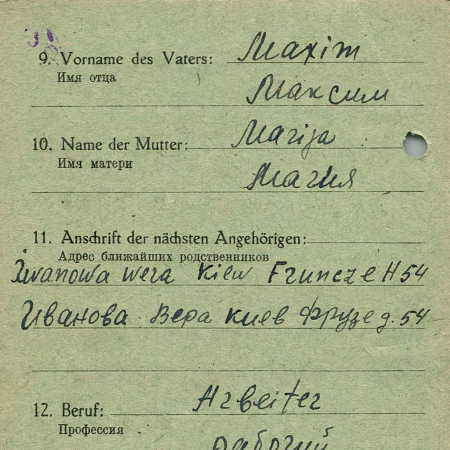 9. Vorname des Vaters: Maxim
Имя отца
Максим
10. Name der Mutter: Marija
Имя матери
Мария
11. Anschrift der nächsten Angehörigen:
Адрес ближайших родственников
Iwanowa wera Kiew Fruncze H 54
Иванова Вера киев Фрузе д. 54
12. Beruf: Arbeiter
Профессия
рабочий